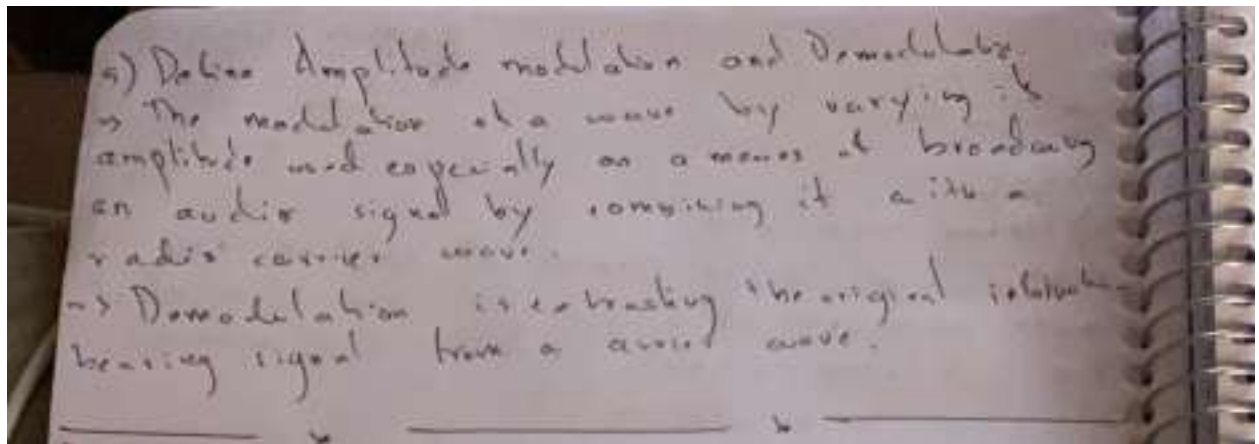 a) Define Amplitude modulation and Demodulation
→ The modulation of a wave by varying its
amplitude used especially as a means of broadcasting
an audio signal by combining it with a
radio carrier wave.
→ Demodulation is extracting the original information
bearing signal from a carrier wave.